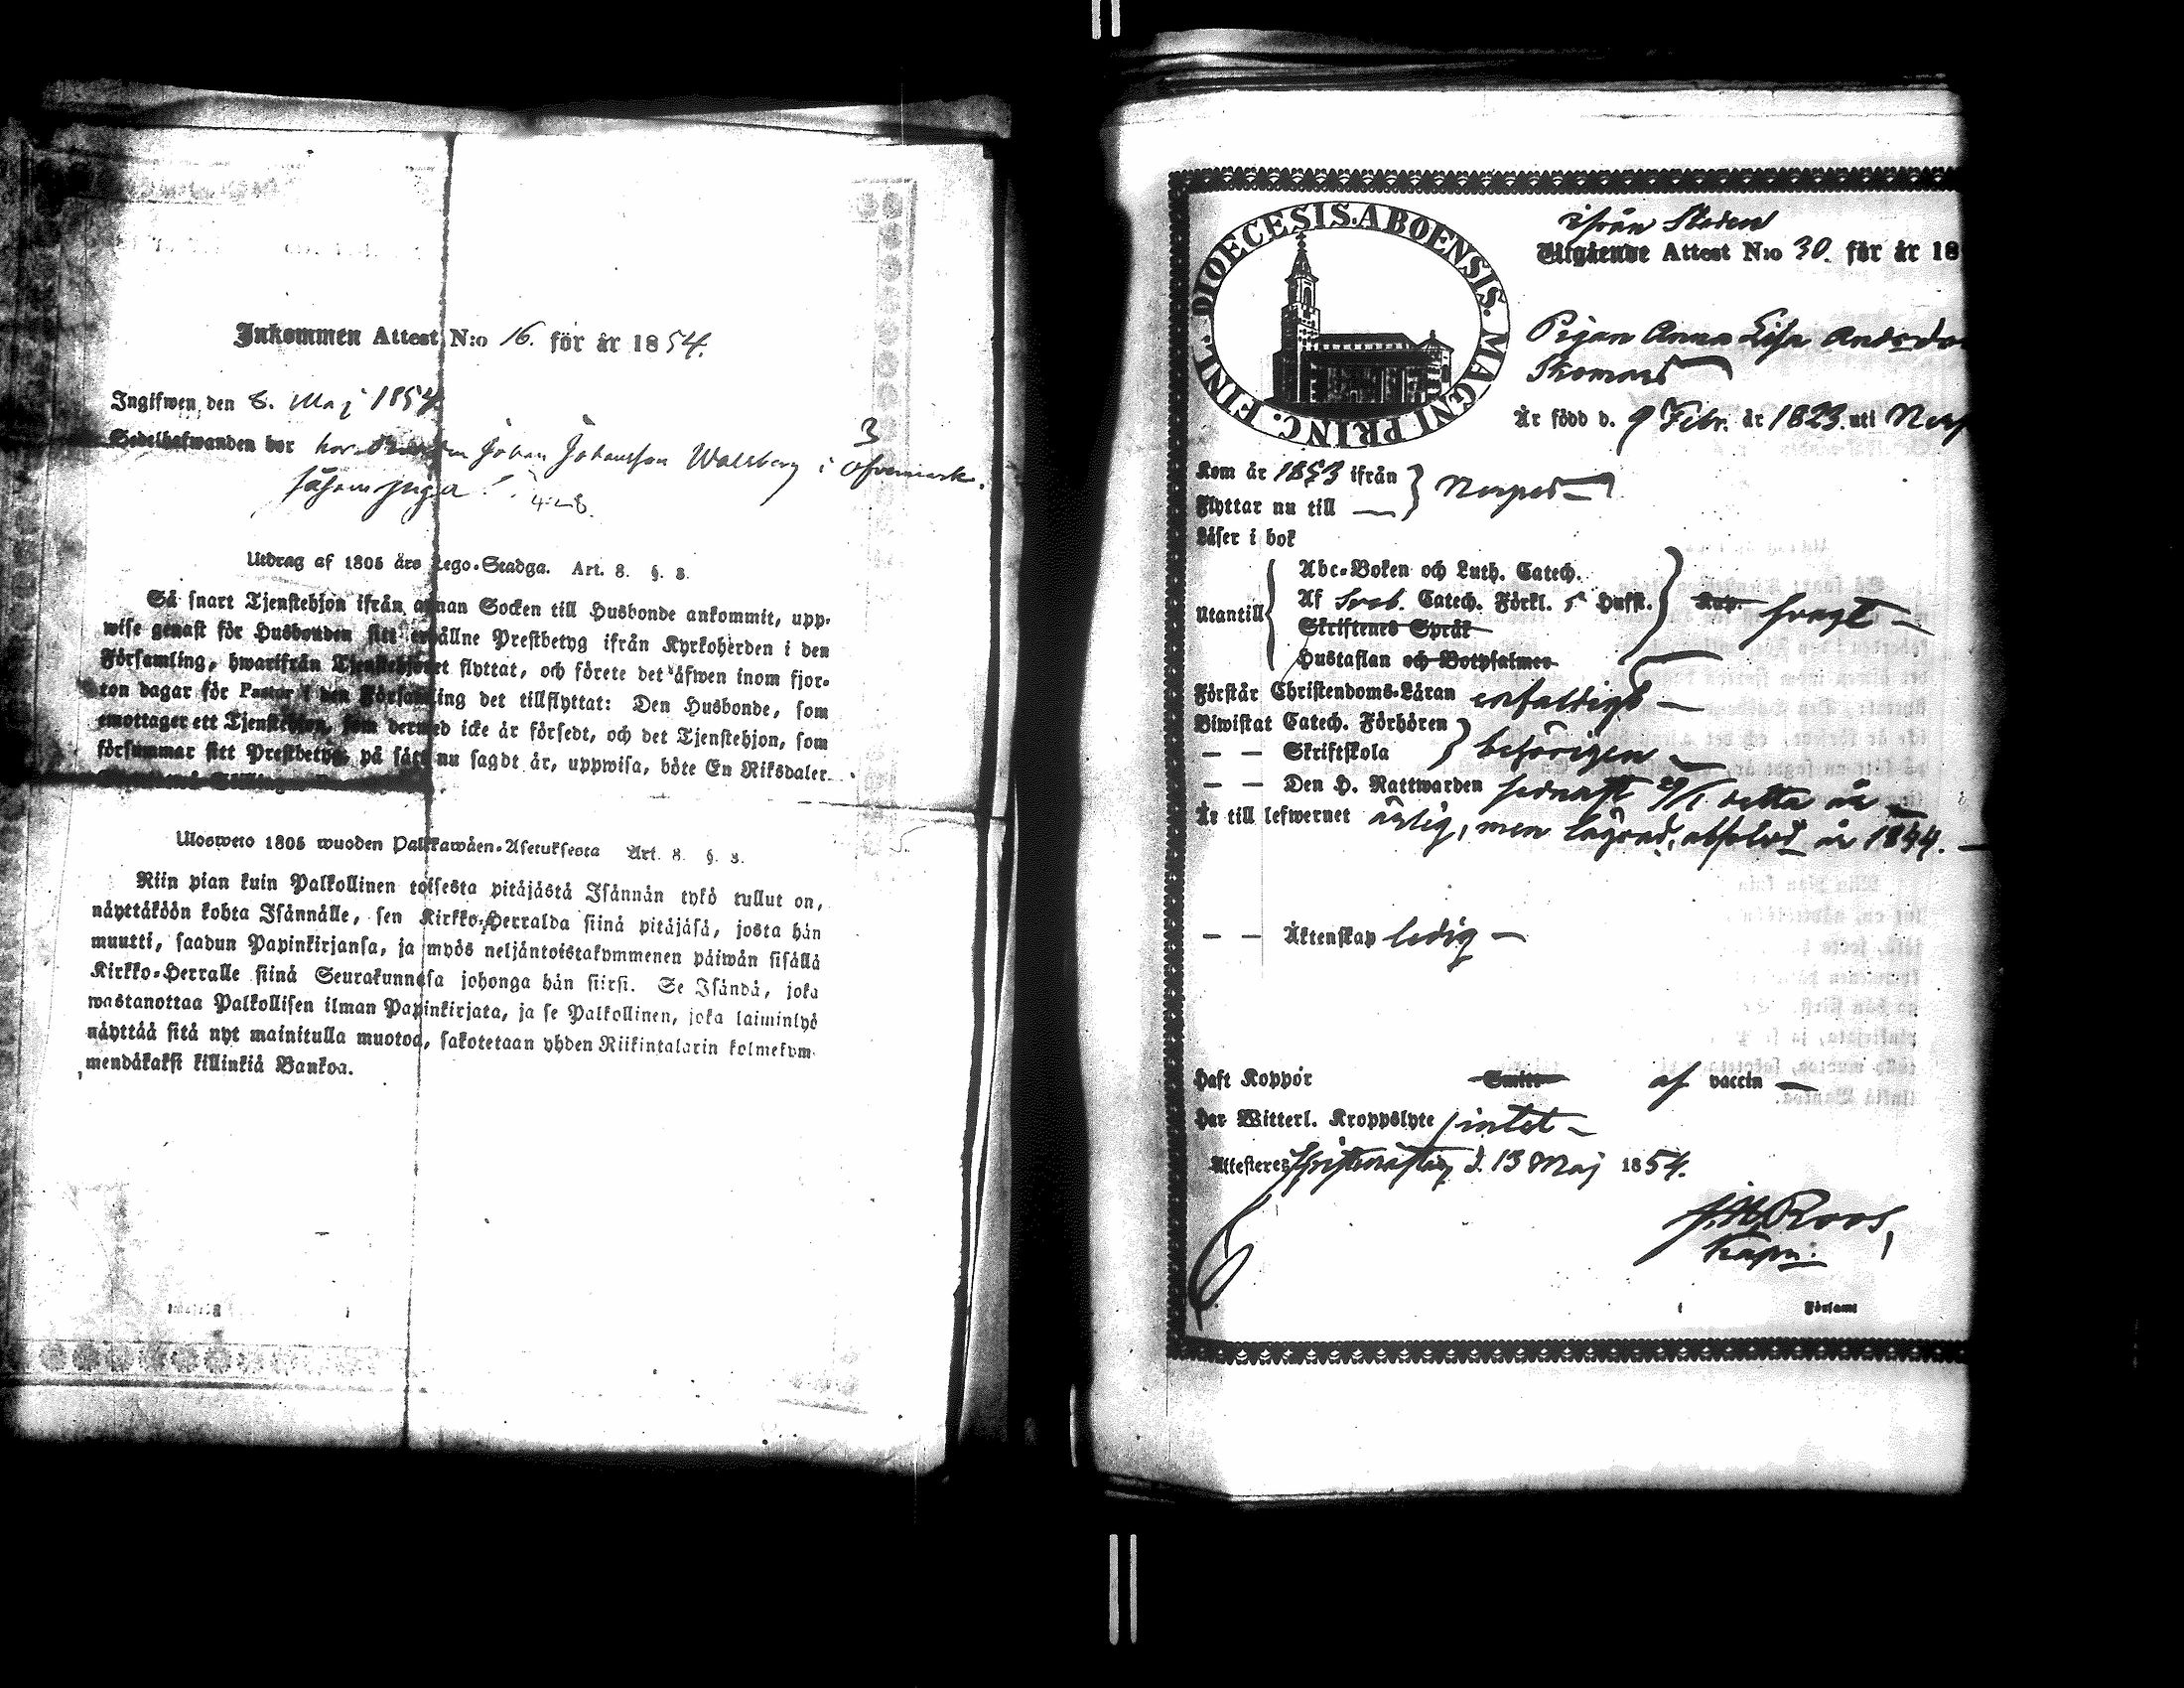 Inkommen Attest N:o 16. för år 1854.
Ingifwen den 8. Maj 1854.
Sedelhafwanden bor hos Johan Johansson Wallberg i Öfvermark.
3
4-28.
Utdrag af 1805 års Lego-Stadga. Art. 8. §. 3.
Så snart Tjenstehjon ifrån annan Socken till Husbonde ankommit, upp-
wise genast för Husbonden sitt erhållne Prestbetyg ifrån Kyrkoherden i den
Församling, hwarifrån Tjenstehjonet flyttat, och förete det äfwen inom fjor-
ton dagar för Pastor i den Församling det tillflyttat: Den Husbonde, som
emottager ett Tjenstehjon, som dermed icke är försedt, och det Tjenstehjon, som
försummar sitt Prestbetyg, på sätt nu sagdt är, uppwisa, böte En Riksdaler
Ulosweto 1805 wuoden Palkkawäen-Asetuksesta Art. 8. §. 3.
Niin pian kuin Palkollinen toisesta pitäjästä Isännän tykö tullut on,
näyttäköön kohta Isännälle, sen Kirkko-Herralda siinä pitäjäsä, josta hän
muutti, saadun Papinkirjansa, ja myös neljäntoistakymmenen päiwän sisällä
Kirkko-Herralle siinä Seurakunnasa johonga hän siirsi. Se Isändä, joka
wastanottaa Palkollisen ilman Papinkirjata, ja se Palkollinen, joka laiminlyö
näyttää sitä nyt mainitulla muotoa, sakotetaan yhden Riikintalarin kolmekym-
mendäkaksi killinkiä Bankoa.
DIOECESIS. ABOENSIS. MAGNI PRINC. FINL.
ifrån Staden
Utgående Attest N:o 30. för år 18
Pigan Anna Lisa Andersdo
Är född d. 9 Febr. år 1823. uti Nerp
Kom år 1853 ifrån
Flyttar nu till — } Nerpes
Läser i bok
Utantill
Abc-Boken och Luth. Catech.
Af Sveb. Catech. Förkl. 5 Hufst.
Skriftenes Språk
Hustaflan och Botpsalmer
svagt
Förstår Christendoms-Läran enfaldigt
Biwistat Catech. Förhören
— — Skriftskola } behörigen
— — Den H. Nattwarden sednast 29/1 detta år
Är till lefwernet ärlig, men lägrad, absolverad år 1844.
— — Äktenskap ledig
Haft Koppor af vaccin
Har Witterl. Kroppslyte intet
Attesteres Christinæstad d. 13 Maj 1854.
J. M. Roos,
Kapn.
Församl